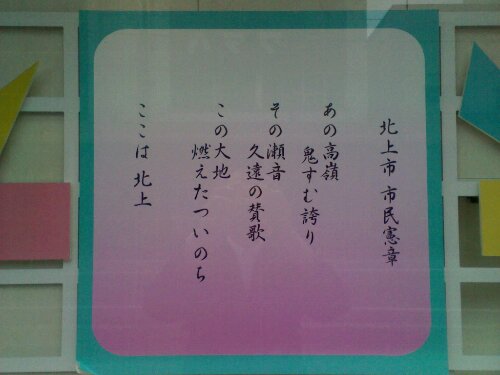 北上市 市民憲章
あの高嶺
鬼すむ誇り
その瀬音
久遠の賛歌
この大地
燃えたついのち
ここは 北上